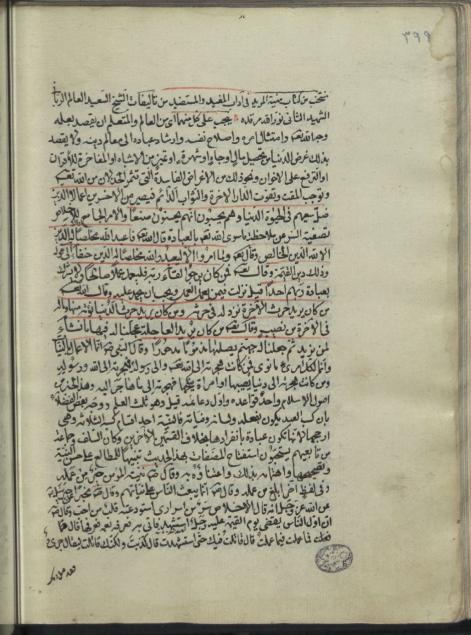 ٣٩٩
منتخب من كتاب منية المريد في آداب المفيد والمستفيد من تاليفات الشيخ السعيد العالم الربا
الشهيد الثاني نور الله مرقده يجب على كل منهما اى من العالم والمتعلم ان يقصد بعلمه
وجه الله تعالى وامتثال امره واصلاح نفسه وارشاد عباده الى معالم دينه ولا يقصد
بذلك عرض الدنيا من تحصيل مال او جاه او شهرة او تميز من الاشباه او المفاخرة للاقران
او الترفع على الاخوان ونحو ذلك من الاغراض الفاسدة التي تثمر الخذلان من الله تعالى
وتوجب المقت وتفوت الدار الاخرة والثواب الدائم فيصير من الاخسرين اعمالا الذين
ضل سعيهم في الحيوة الدنيا وهم يحسبون انهم يحسنون صنعا والامر الجامع للاخلاص
تصفية السر عن ملاحظة ما سوى الله تعالى بالعبادة قال الله تعالى فاعبد الله مخلصا له الدين
الا لله الدين الخالص وقال تعالى وما امروا الا ليعبدوا الله مخلصين له الدين حنفاء
وذلك دين القيمة وقال تعالى فمن كان يرجوا لقاء ربه فليعمل عملا صالحا ولا يشرك
بعبادة ربه احدا قيل نزلت فيمن يعمل العمل ويحب ان يحمد عليه وقال تعالى
من كان يريد حرث الاخرة نزد له في حرثه ومن كان يريد حرث الدنيا نؤته منها وماله
في الاخرة من نصيب وقال تعالى من كان يريد العاجلة عجلنا له فيها ما نشاء
لمن نريد ثم جعلنا له جهنم يصليها مذموما مدحورا وقال النبي انما الاعمال بالنيات
وانما لكل امرئ ما نوى فمن كانت هجرته الى الله والى رسوله فهجرته الى الله ورسوله
ومن كانت هجرته الى دنيا يصيبها او امراة ينكحها فهجرته الى ما هاجر اليه وهذا الخبر من
اصول الاسلام واحد قواعده واول دعائمه قيل وهو ثلث العلم ووجهه بعض الفضلاء
بان كسب العبد يكون بقلبه ولسانه وبنانه فالنية احد اقسام كسبه الثلاثة وهي
ارجحها لانها تكون عبادة بانفرادها بخلاف القسمين الاخرين وكان السلف وجماعة
من تابعيهم يستحبون استفتاح المصنفات بهذا الحديث تنبيها للمطالع على حسن النية
وتصحيحها واهتمامه بذلك واعتنائه به وقال نية المؤمن خير من عمله
وفي لفظ اخر ابلغ من عمله وقال انما يبعث الناس على نياتهم وقال مخبرا عن جبرئيل
عن الله عز وجل انه قال الاخلاص سر من اسراري استودعته قلب من احببت من عبادي وقال
ان اول الناس يقضى يوم القيمة عليه رجل استشهد فاتى به فعرفه نعمه فعرفها قال فما
عملت فيها قال قاتلت فيك حتى استشهدت قال كذبت ولكنك قاتلت ليقال جرئ